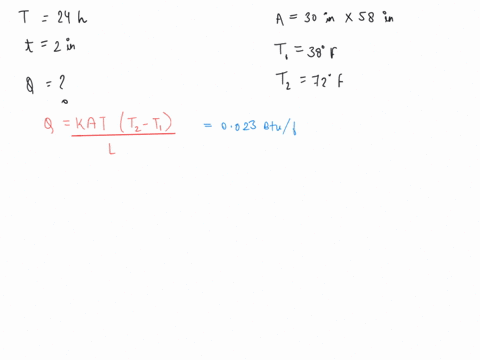 T = 24 h
t = 2 in
Q = ?
A = 30 in × 58 in
T₁ = 38° F
T₂ = 72° F
Q = KAT (T₂ - T₁) / L = 0.023 Btu/